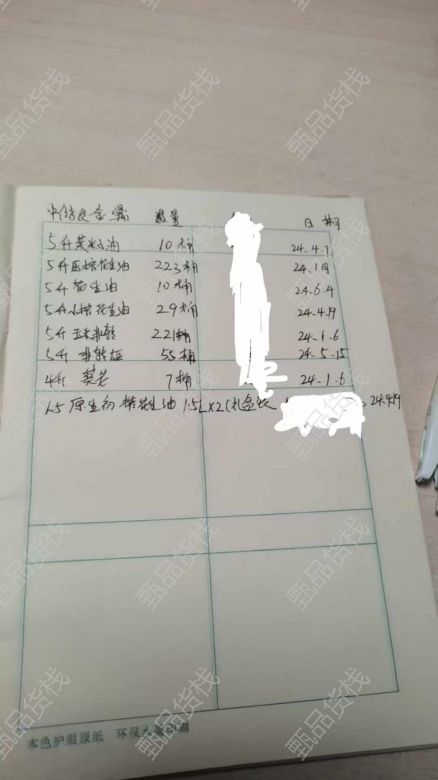 数量 日期
5升菜籽油 10桶 24.4.7
5升压榨花生油 223桶 24.1月
5升花生油 10桶 24.6.4
5升小榨花生油 29桶 24.4.19
5升玉米非转 221桶 24.1.6
5升非转 55桶 24.5.15
4升葵花 7桶 24.1.6
1.5原生初榨花生油 1.5L×2(礼盒装 24.4.19
本色护眼原纸 环保大豆印刷
甄品货栈